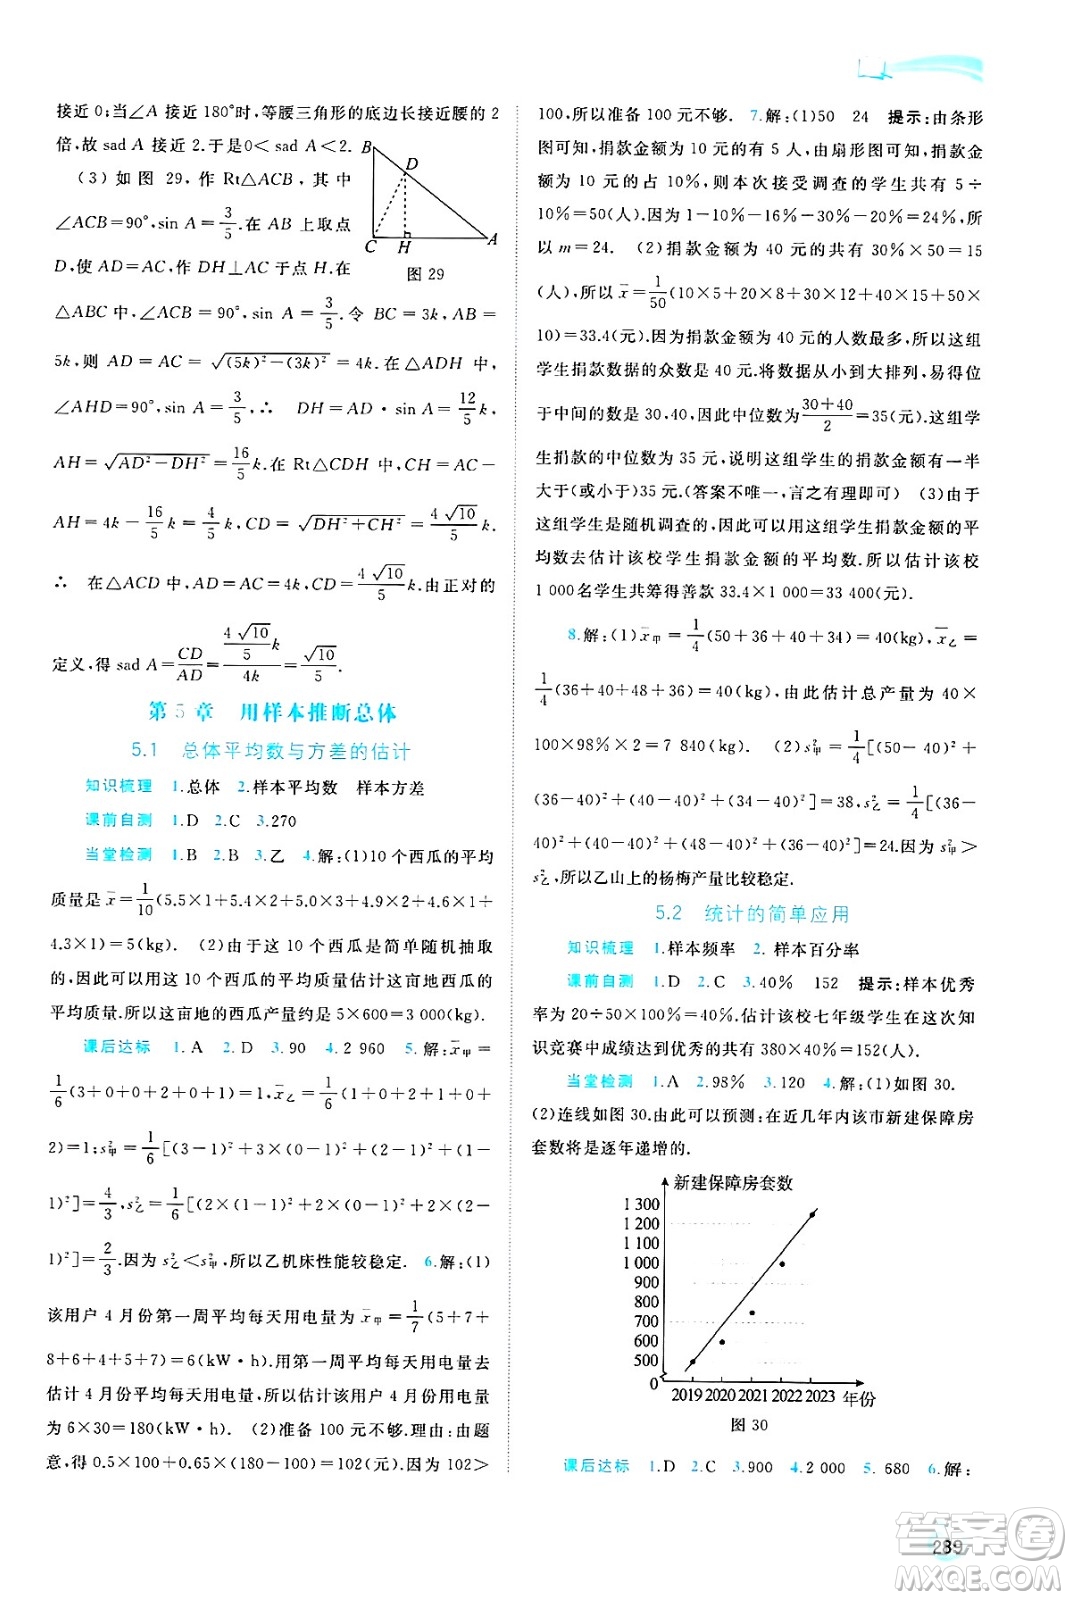 接近 0;当∠A 接近 180°时,等腰三角形的底边长接近腰的 2
倍,故 sad A 接近 2.于是 0< sad A<2.
(3) 如图 29,作 Rt△ACB,其中
∠ACB=90°,sin A=3/5.在 AB 上取点
D,使 AD=AC,作 DH⊥AC 于点 H.在
△ABC 中,∠ACB=90°,sin A=3/5.令 BC=3k,AB=
5k,则 AD=AC=√((5k)²-(3k)²)=4k.在△ADH 中,
∠AHD=90°,sin A=3/5,∴ DH=AD·sin A=12/5 k,
AH=√(AD²-DH²)=16/5 k.在 Rt△CDH 中,CH=AC-
AH=4k-16/5 k=4/5 k,CD=√(DH²+CH²)=4√10/5 k.
∴ 在△ACD 中,AD=AC=4k,CD=4√10/5 k.由正对的
定义,得 sad A=CD/AD=(4√10/5 k)/4k=√10/5.
B
D
C
H
A
图 29
第 5 章 用样本推断总体
5.1 总体平均数与方差的估计
知识梳理 1.总体 2.样本平均数 样本方差
课前自测 1.D 2.C 3.270
当堂检测 1.B 2.B 3.乙 4.解:(1)10 个西瓜的平均
质量是 x̄=1/10(5.5×1+5.4×2+5.0×3+4.9×2+4.6×1+
4.3×1)=5(kg). (2)由于这 10 个西瓜是简单随机抽取
的,这 10 个西瓜的平均质量估计这亩地西瓜的平均质
量,所以这亩地的西瓜产量约是 5×600=3 000(kg).
课后达标 1.A 2.D 3.90 4.2 960 5.解:x̄甲=
1/6(3+0+0+2+0+1)=1,x̄乙=1/6(1+0+2+1+0+
2)=1;s²甲=1/6[(3-1)²+3×(0-1)²+(2-1)²+(1-
1)²]=4/3,s²乙=1/6[(2×(1-1)²+2×(0-1)²+2×(2-
1)²]=2/3.因为 s²乙<s²甲,所以乙机床性能较稳定. 6.解:(1)
该用户 4 月份第一周平均每天用电量为 x̄甲=1/7(5+7+
8+6+5+4+7)=6(kW·h).用第一周平均每天用电量去
估计 4 月份平均每天用电量,所以估计该用户 4 月份用电量
为 6×30=180(kW·h). (2)准备 100 元不够.理由:由题
意,得 0.5×100+0.65×(180-100)=102(元).因为 102>
100,所以准备 100 元不够. 7.解:(1)50 24 提示:由条形
图可知,捐款金额为10 的有 5 人,由扇形图可知,捐款金
额为 10 元的占 10%,则本次接受调查的学生有 5÷
10%=50(人).因为 1-10%-16%-30%-20%=24%,所
以 m=24. (2)捐款金额为 40 元的有 30%×50=15
(人),所以 x̄=1/50(10×5+20×8+30×12+40×15+50×
10)=33.4(元).因为捐款金额为 40 元的人数最多,所以这组
学生捐款数据的众数是 40 元.将数据从小到大排列,已知位
于中间的数是 30,40,因此中位数为(30+40)/2=35(元).这组学
生捐款的中位数为 35 元,说明这组学生的捐款金额有一半
大于(或小于)35 元.(答案不唯一,言之有理即可) (3)由于
这组学生是随机调查的,因此可以用这组学生捐款金额的平
均数去估计该校学生捐款金额的平均数.所以估计该校
1 000名学生共筹得善款 33.4×1 000=33 400(元).
8.解:(1)x̄甲=1/4(50+36+40+34)=40(kg),x̄乙=
1/4(36+40+48+36)=40(kg),由此估计总产量为 40×
100×98%×2=7 840(kg). (2)s²甲=1/4[(50-40)²+
(36-40)²+(40-40)²+(34-40)²]=38,s²乙=1/4[(36-
40)²+(40-40)²+(48-40)²+(36-40)²]=24.因为 s²甲>
s²乙,所以乙山上的杨梅产量比较稳定.
5.2 统计的简单应用
知识梳理 1.样本频率 2. 样本百分率
课前自测 1.D 2.C 3.40% 152 提示:样本优秀
率为 20÷50×100%=40%.估计该校七年级学生在这次知
识竞赛中成绩达到优秀的共有 380×40%=152(人).
当堂检测 1.A 2.98% 3.120 4.解:(1)如图 30.
(2)连线如图 30.由此可以预测:在近几年内该市新建保障房
套数将是逐年递增的.
新建保障房套数
1 300
1 200
1 100
1 000
900
800
700
600
500
0
2019 2020 2021 2022 2023 年份
图 30
课后达标 1.D 2.C 3.900 4.2 000 5.680 6.解:
239
答案圈
MXQE.COM